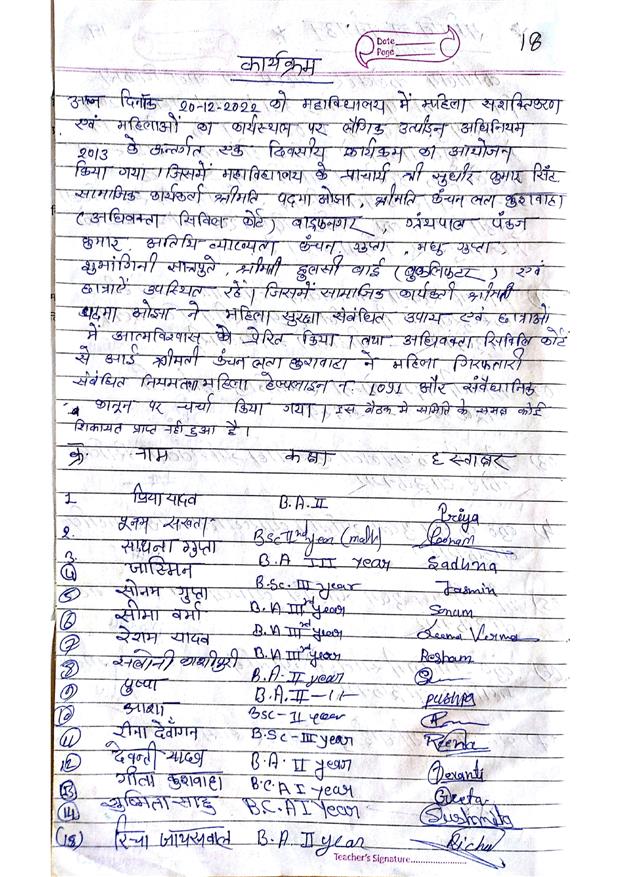 Date
Page
18
कार्यक्रम
आज दिनाँक 20-12-2022 को महाविद्यालय में महिला सशक्तिकरण
एवं महिलाओं का कार्यस्थल पर लैंगिक उत्पीड़न अधिनियम
2013 के अन्तर्गत एक दिवसीय कार्यक्रम का आयोजन
किया गया। जिसमें महाविद्यालय के प्राचार्य श्री सुधीर कुमार सिंह
सामाजिक कार्यकर्ता श्रीमति पदमा ओझा, श्रीमति कंचन लता कुशवाहा
(अधिवक्ता सिविल कोर्ट) वाड्रफनगर, ग्रंथपाल पंकज
कुमार, अतिथि व्याख्याता कंचन गुप्ता, मधु गुप्ता,
शुभांगिनी सातपुते, श्रीमती तुलसी बाई (बुकलिफ्टर) एवं
छात्राएँ उपस्थित रहें। जिसमें सामाजिक कार्यकर्ता श्रीमती
पदमा ओझा ने महिला सुरक्षा संबंधित उपाय एवं छात्राओं
में आत्मविश्वास को प्रेरित किया। तथा अधिवक्ता सिविल कोर्ट
से आई श्रीमती कंचन लता कुशवाहा ने महिला गिरफ्तारी
संबंधित नियम तथा महिला हेल्पलाइन न. 1091 और संवैधानिक
कानून पर चर्चा किया गया। इस बैठक में समिति के समक्ष कोई
शिकायत प्राप्त नही हुआ है।
क्र. नाम कक्षा हस्ताक्षर
1 प्रिया यादव B.A.II Priya
2. पूनम BSc II nd year (math) Poonam
3. साधना गुप्ता B.A III year Sadhna
4 जास्मिन B.Sc. III year Jasmin
5 सोनम गुप्ता B.A III rd year Sonam
6 सीमा वर्मा B.A III rd year Seema Verma
7 रेशम यादव B.A III rd year Resham
8 काशीपुरी B.A-II year
9 पुष्पा B.A.II-11 pushpa
10 आशा BSC-II year
11 रीना देवाँगन B.Sc-III year Reena
12 देवन्ती यादव B.A II year Devanti
13 गीता कुशवाहा B.C.A I year Geeta
14 सुष्मिता साहु B.C.A I year Sushmita
(15) रिचा जायसवाल B.A II year Richa
Teacher's Signature